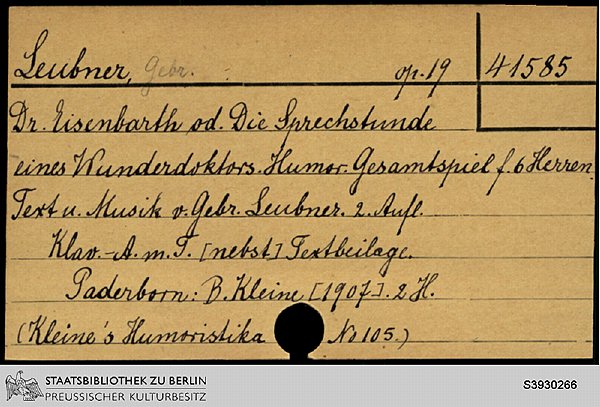 Leubner, Gebr. op. 19 41585
Dr. Eisenbarth od. Die Sprechstunde
eines Wunderdoktors. Humor. Gesamtspiel f. 6 Herren.
Text u. Musik v. Gebr. Leubner. 2. Aufl.
Klav.-A. m. T. [nebst] Textbeilage.
Paderborn: B. Kleine [1907]. 2 H.
(Kleine's Humoristika No 105.)
STAATSBIBLIOTHEK ZU BERLIN
PREUSSISCHER KULTURBESITZ
S3930266